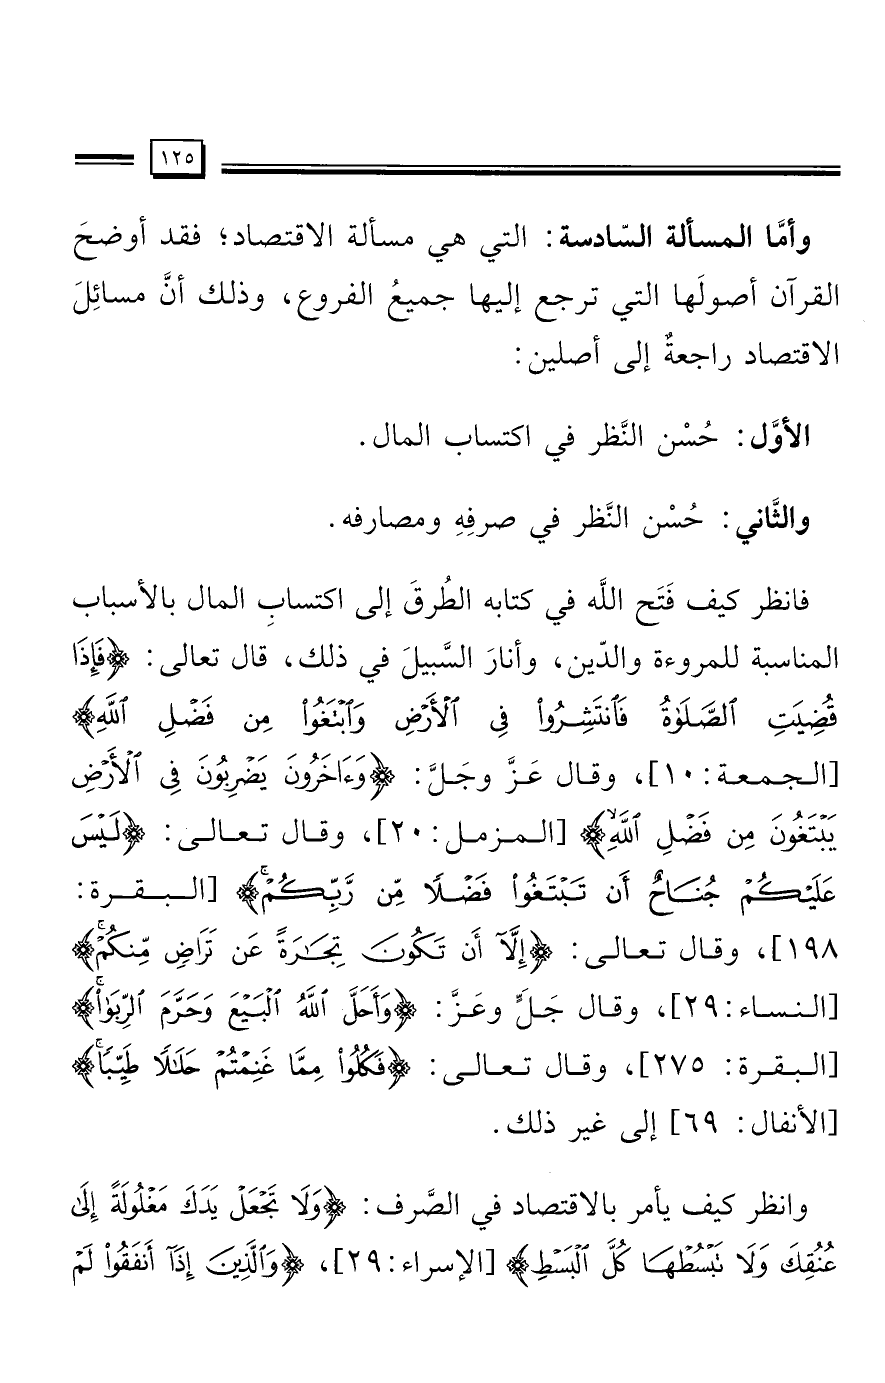 ١٢٥
وأمَّا المسألة السّادسة: التي هي مسألة الاقتصاد؛ فقد أوضحَ
القرآن أصولَها التي ترجع إليها جميعُ الفروع، وذلك أنَّ مسائِلَ
الاقتصاد راجعةٌ إلى أصلين:
الأوَّل: حُسْن النَّظر في اكتساب المال.
والثَّاني: حُسْن النَّظر في صرفِهِ ومصارفه.
فانظر كيف فَتَح اللَّه في كتابه الطُرقَ إلى اكتسابِ المال بالأسباب
المناسبة للمروءة والدّين، وأنارَ السَّبيلَ في ذلك، قال تعالى: ﴿فَإِذَا
قُضِيَتِ ٱلصَّلَوٰةُ فَٱنتَشِرُوا۟ فِى ٱلْأَرْضِ وَٱبْتَغُوا۟ مِن فَضْلِ ٱللَّهِ﴾
[الجمعة: ١٠]، وقال عَزَّ وجَلَّ: ﴿وَءَاخَرُونَ يَضْرِبُونَ فِى ٱلْأَرْضِ
يَبْتَغُونَ مِن فَضْلِ ٱللَّهِۙ﴾ [المزمل: ٢٠]، وقال تعالى: ﴿لَيْسَ
عَلَيْكُمْ جُنَاحٌ أَن تَبْتَغُوا۟ فَضْلًا مِّن رَّبِّكُمْۚ﴾ [البقرة:
١٩٨]، وقال تعالى: ﴿إِلَّآ أَن تَكُونَ تِجَٰرَةً عَن تَرَاضٍ مِّنكُمْۚ﴾
[النساء: ٢٩]، وقال جَلَّ وعَزَّ: ﴿وَأَحَلَّ ٱللَّهُ ٱلْبَيْعَ وَحَرَّمَ ٱلرِّبَوٰا۟ۚ﴾
[البقرة: ٢٧٥]، وقال تعالى: ﴿فَكُلُوا۟ مِمَّا غَنِمْتُمْ حَلَٰلًا طَيِّبًاۚ﴾
[الأنفال: ٦٩] إلى غير ذلك.
وانظر كيف يأمر بالاقتصاد في الصَّرف: ﴿وَلَا تَجْعَلْ يَدَكَ مَغْلُولَةً إِلَىٰ
عُنُقِكَ وَلَا تَبْسُطْهَا كُلَّ ٱلْبَسْطِ﴾ [الإسراء: ٢٩]، ﴿وَٱلَّذِينَ إِذَآ أَنفَقُوا۟ لَمْ